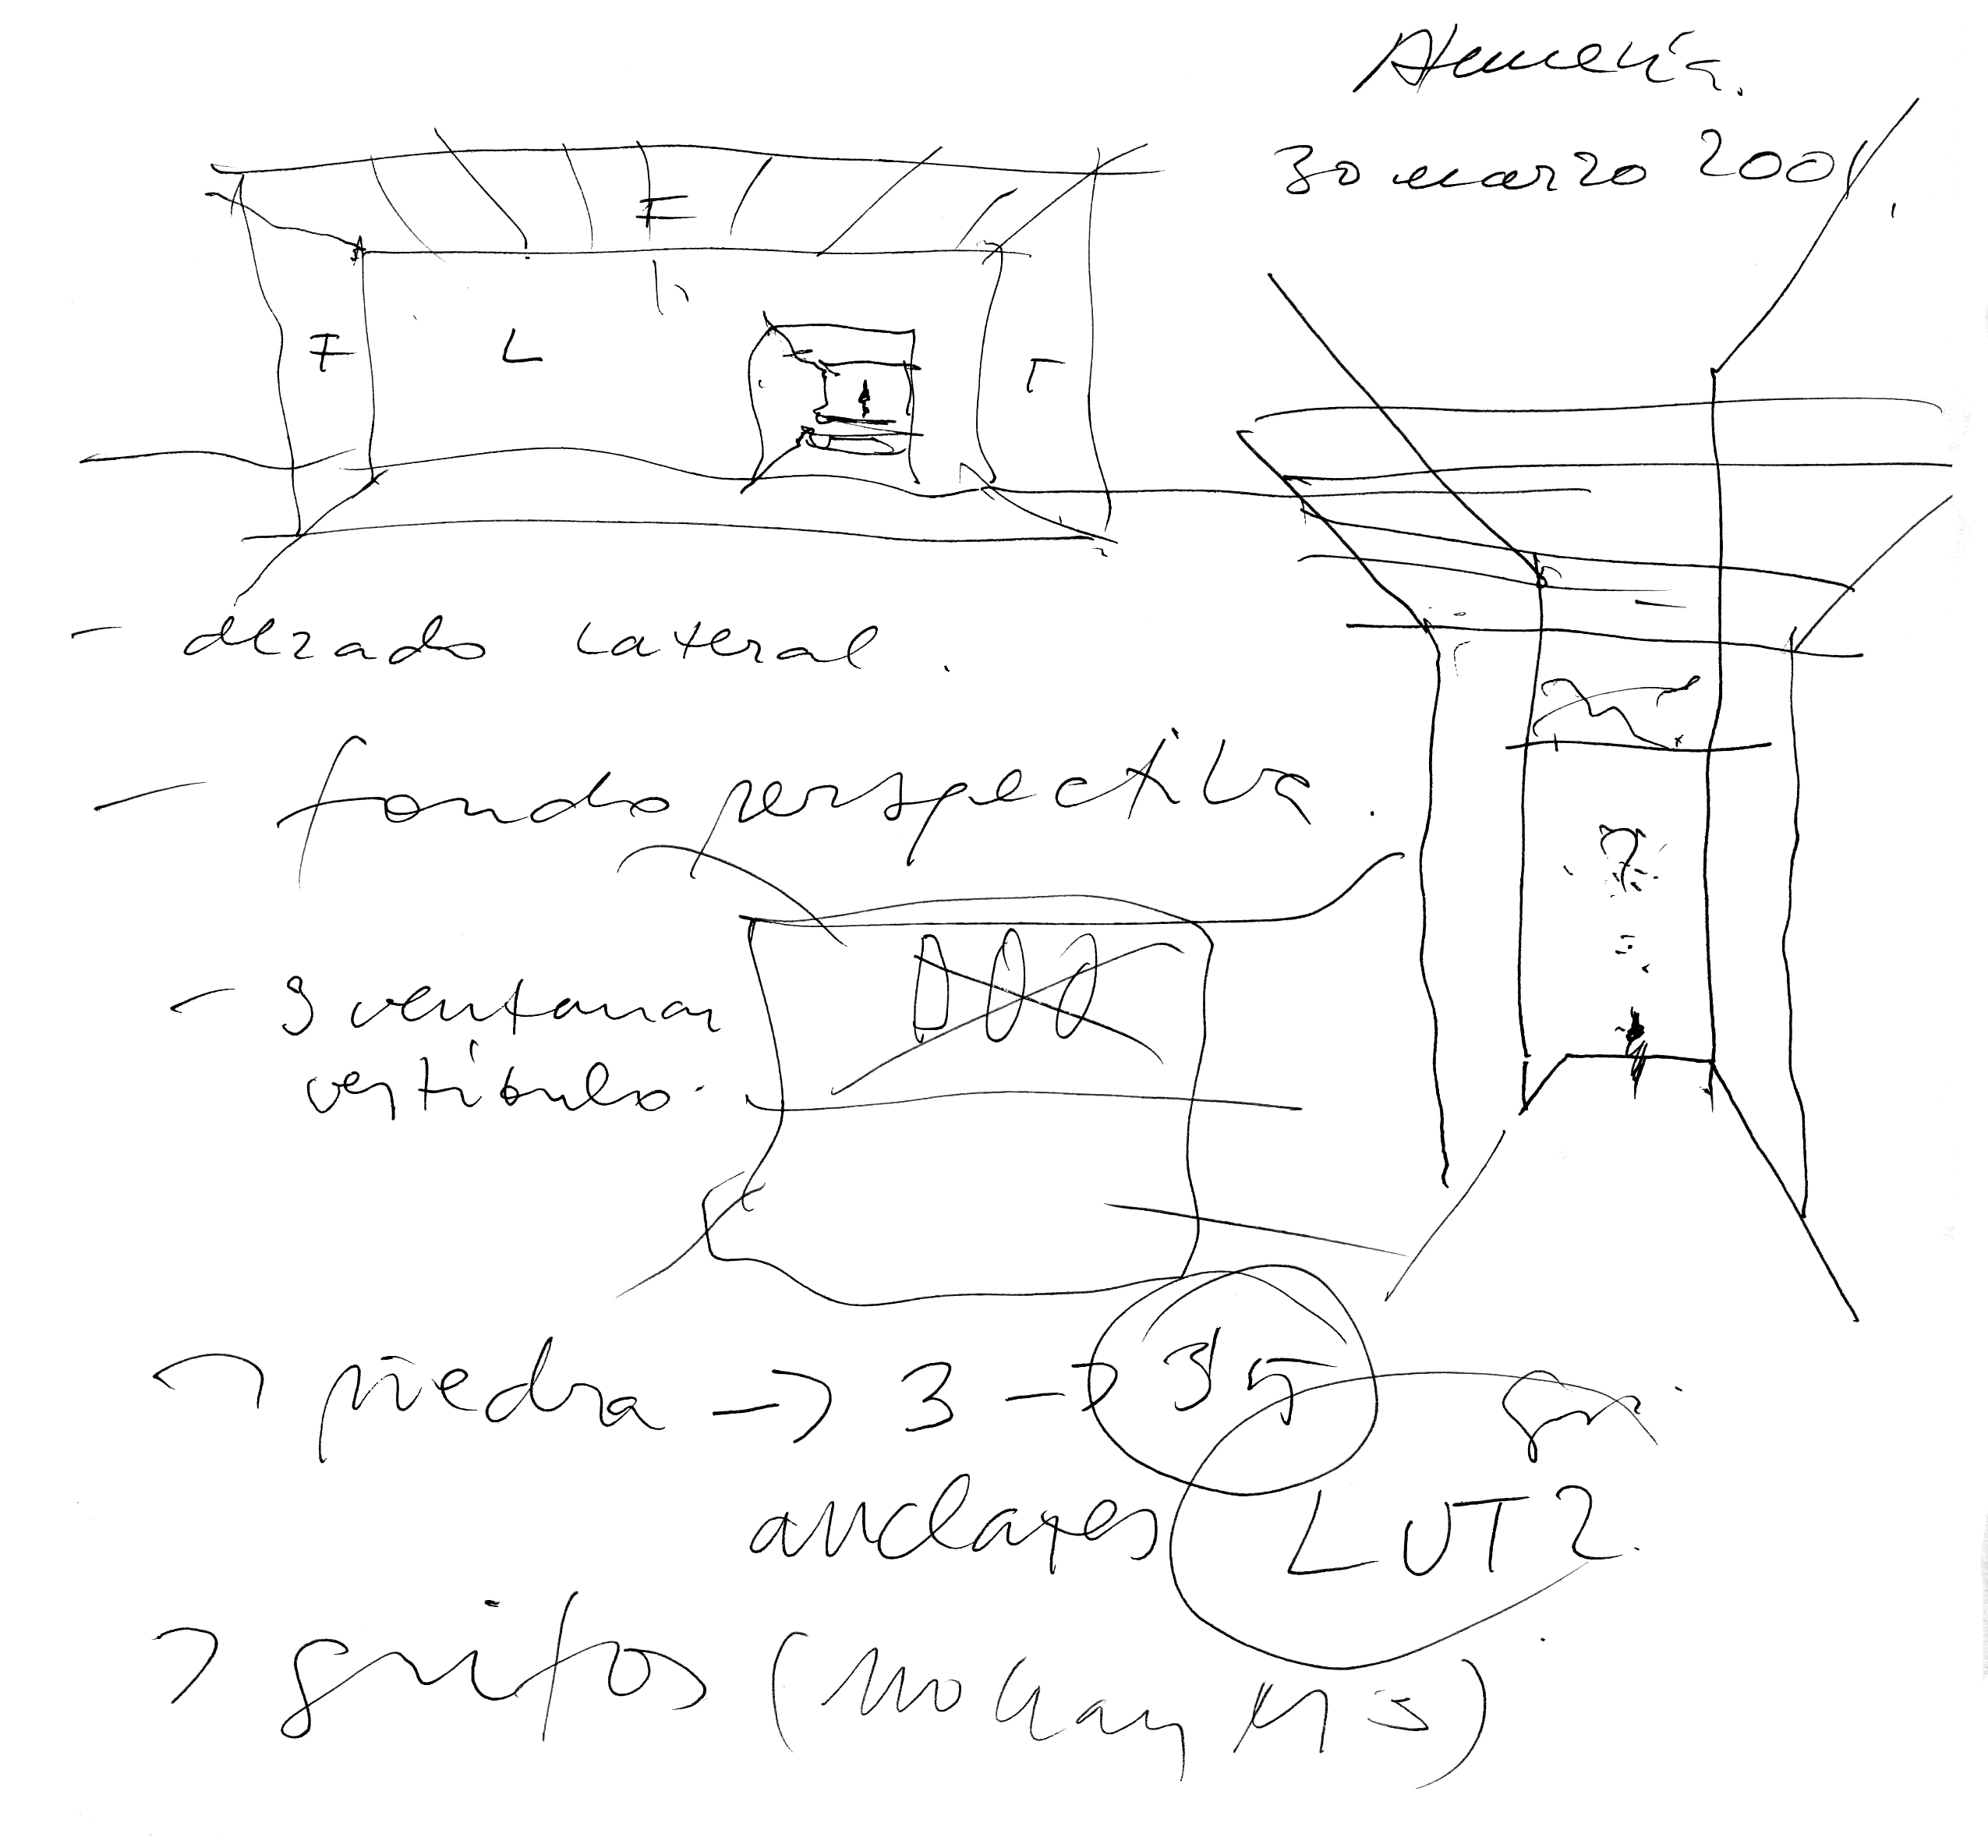 Almería.
30 marzo 2001
F
F
L
T
- alzado lateral.
- fondo perspectiva.
- 3 ventanas
vestíbulo.
piedra -> 3 -> 35
anclajes LUTZ.
> grifos (no hay